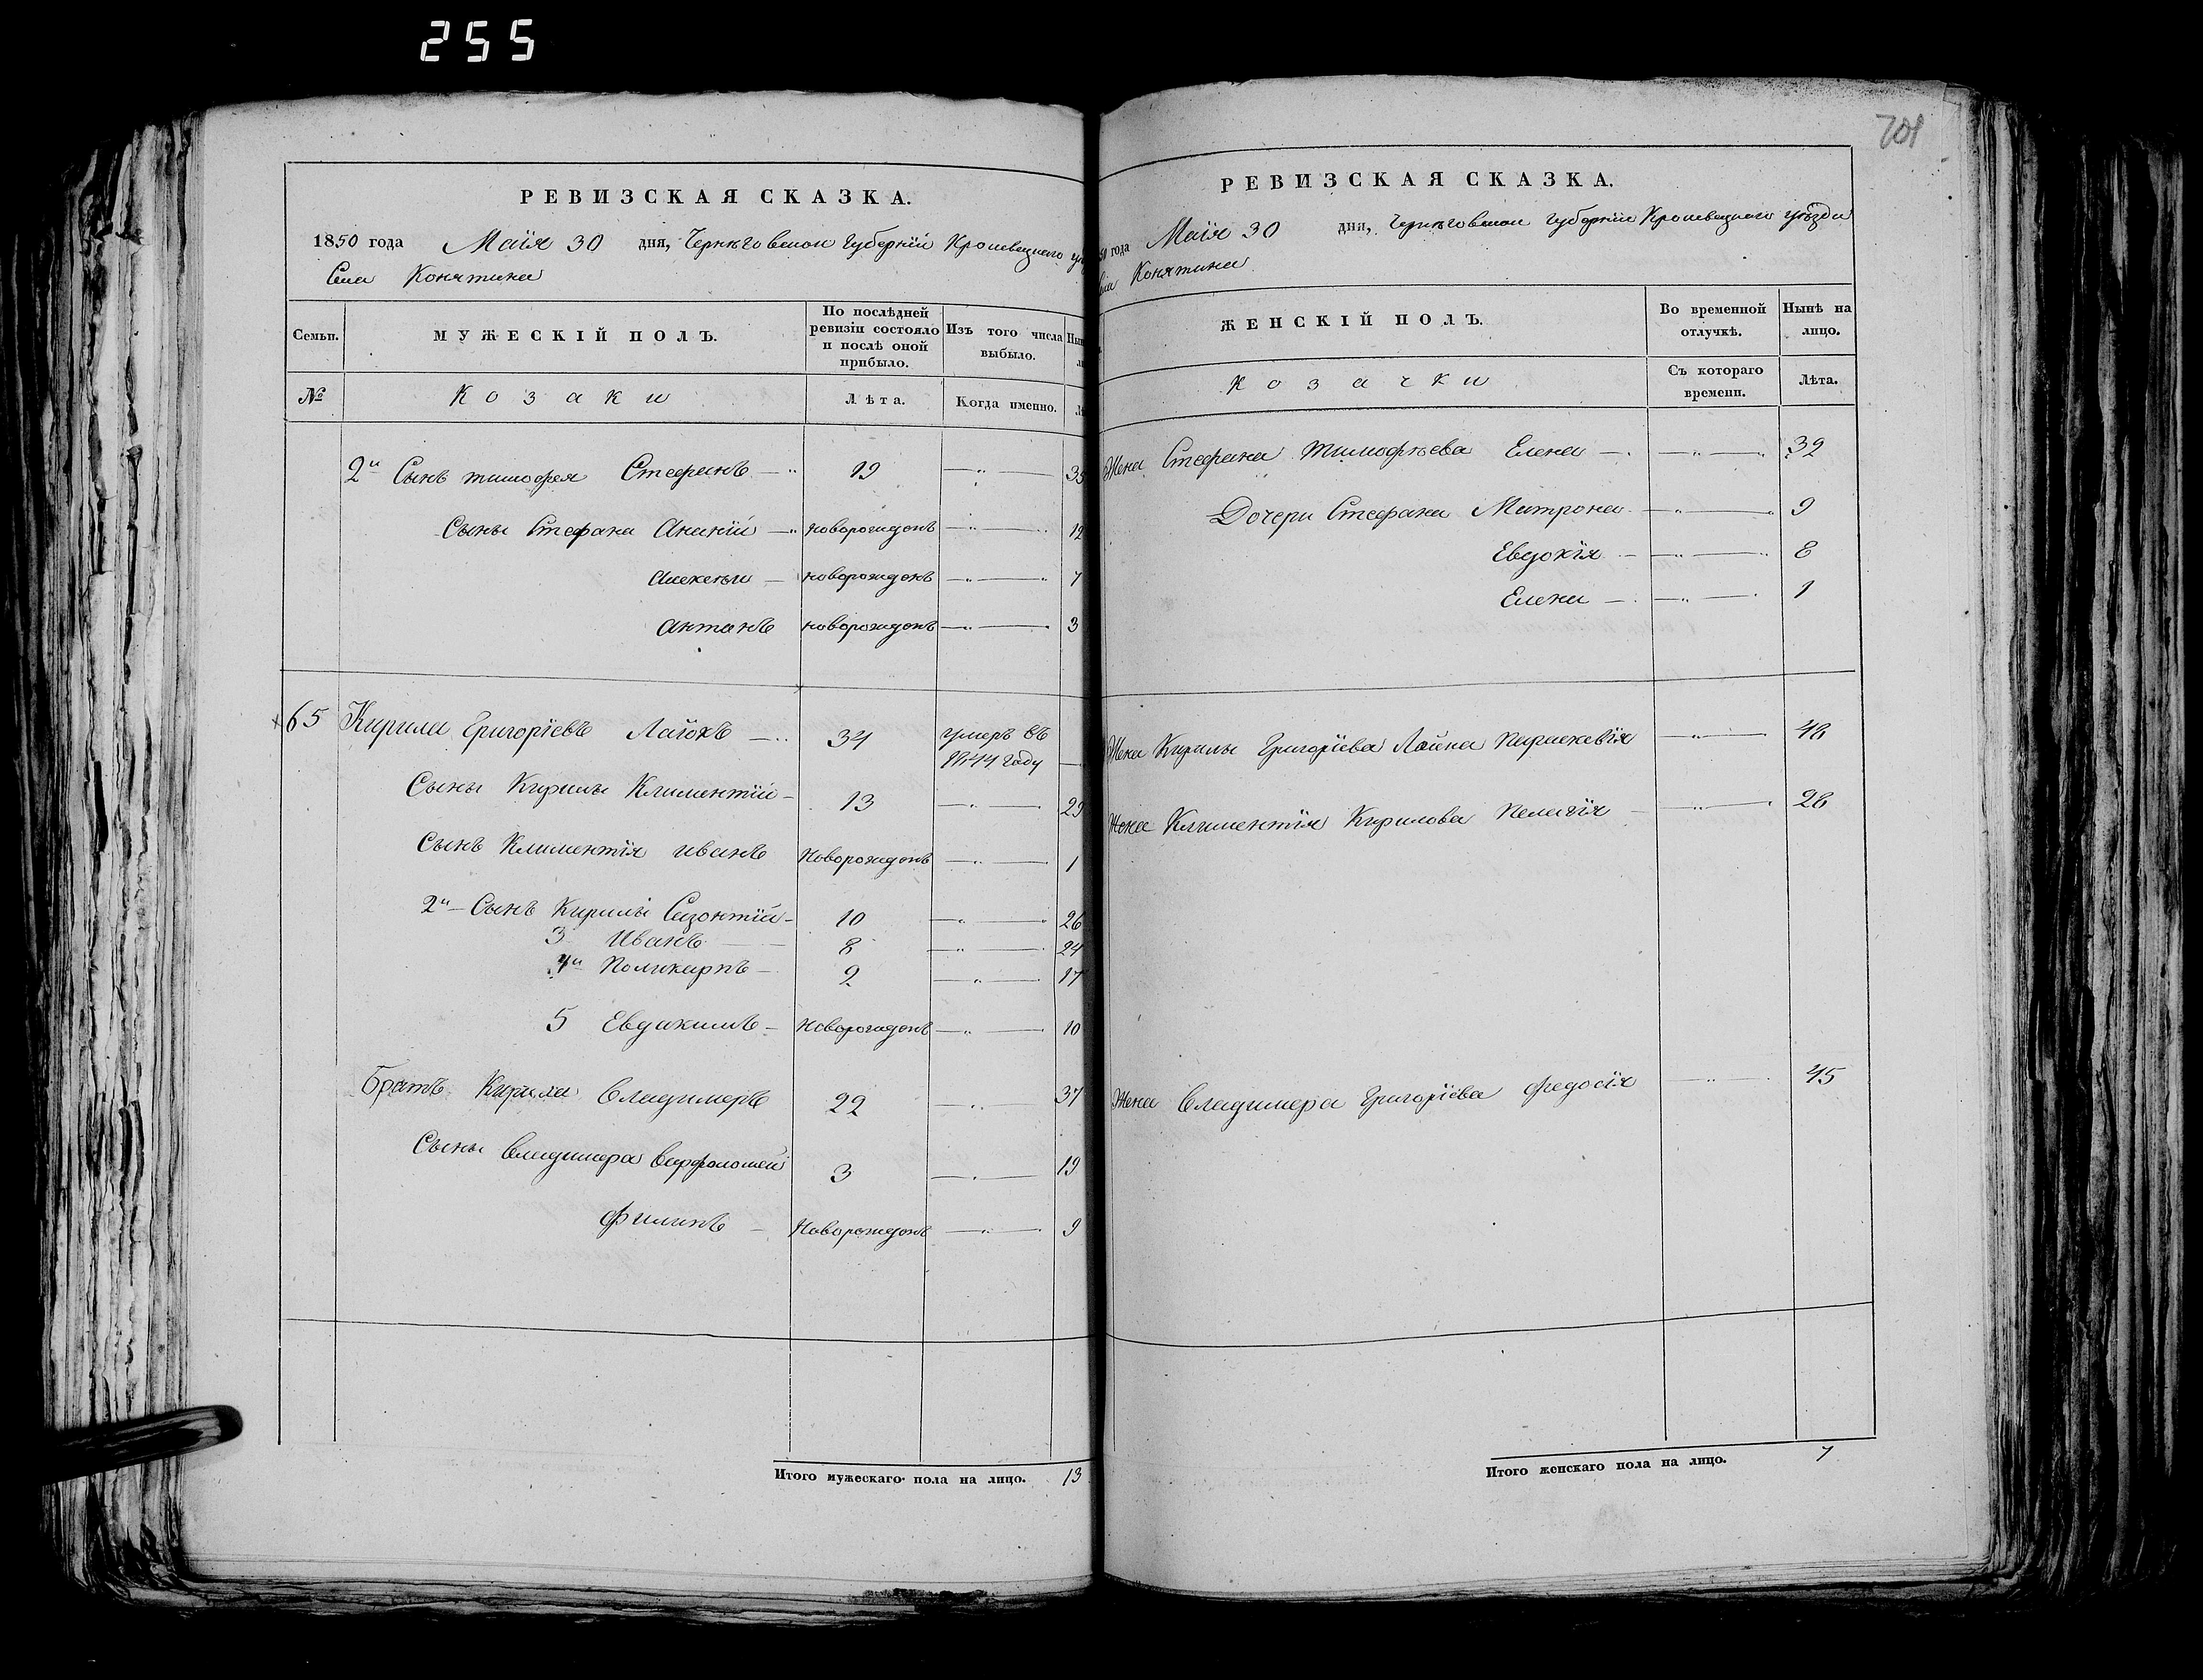 255
701
РЕВИЗСКАЯ СКАЗКА.
1850 года Маія 30 дня, Черниговской губерніи Кролевецкаго
Села Конятина
Семьи.
МУЖЕСКІЙ ПОЛЪ.
По послѣдней ревизіи состояло и послѣ оной прибыло.
Изъ того числа выбыло.
№
Козаки
Лѣта.
Когда именно.
2й Сынъ тимофея Стефанъ — 19 — 35
Сыны Стефана Ананій — новорожденъ — 12
Алексѣй — новорожденъ — 7
антонъ новорожденъ — 3
65 Кирила Григоріевъ Лайокъ — 34 умеръ въ
1844 году —
Сыны Кирилы Климентій — 13 — 29
Сынъ Климентія иванъ Новорожденъ — 1
2й — Сынъ Кирилы Сазонтій — 10 — 26
3 Иванъ — 8 — 24
4й Поликарпъ — 2 — 17
5 Евдакимъ — Новорожденъ — 10
Братъ Кирила Владимеръ 22 — 37
Сыны Владимера Варфоломей 3 — 19
Филипъ — Новорожденъ — 9
Итого мужескаго пола на лицо. 13
РЕВИЗСКАЯ СКАЗКА.
50 года Маія 30 дня, Черниговской губерніи Кролевецкаго уѣзда
Конятина
ЖЕНСКІЙ ПОЛЪ.
Во временной отлучкѣ.
Нынѣ на лицо.
Козачки
Съ котораго времени.
Лѣта.
Жена Стефана Тимофѣева Елена — — 32
Дочери Стефана Матрона — 9
Евдокія — — 8
Елена — — 1
Жена Кирилы Григоріева Лайка параскевія — 48
Жена Климентія Кирилова пелагія — 26
Жена Владимера Григоріева Федосія — 45
Итого женскаго пола на лицо. 7